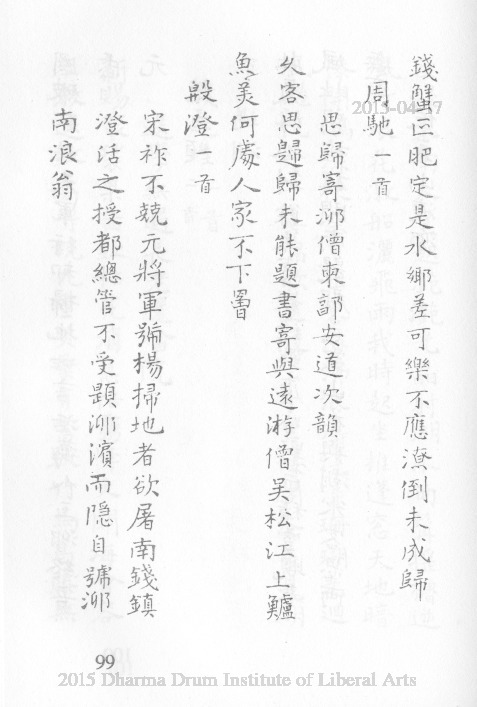 錢蟹正肥定是水鄉差可樂不應潦倒未成歸
周馳一首
思歸寄泖僧柬鄗安道次韻
久客思歸歸未能題書寄與遠游僧吳松江上鱸
魚美何處人家不下罾
殷澄一首
宋祚不競元將軍號楊掃地者欲屠南錢鎮
澄活之授都總管不受題泖濱而隱自號泖
南浪翁
99
2015-04-
2015 Dharma Drum Institute of Liberal Arts